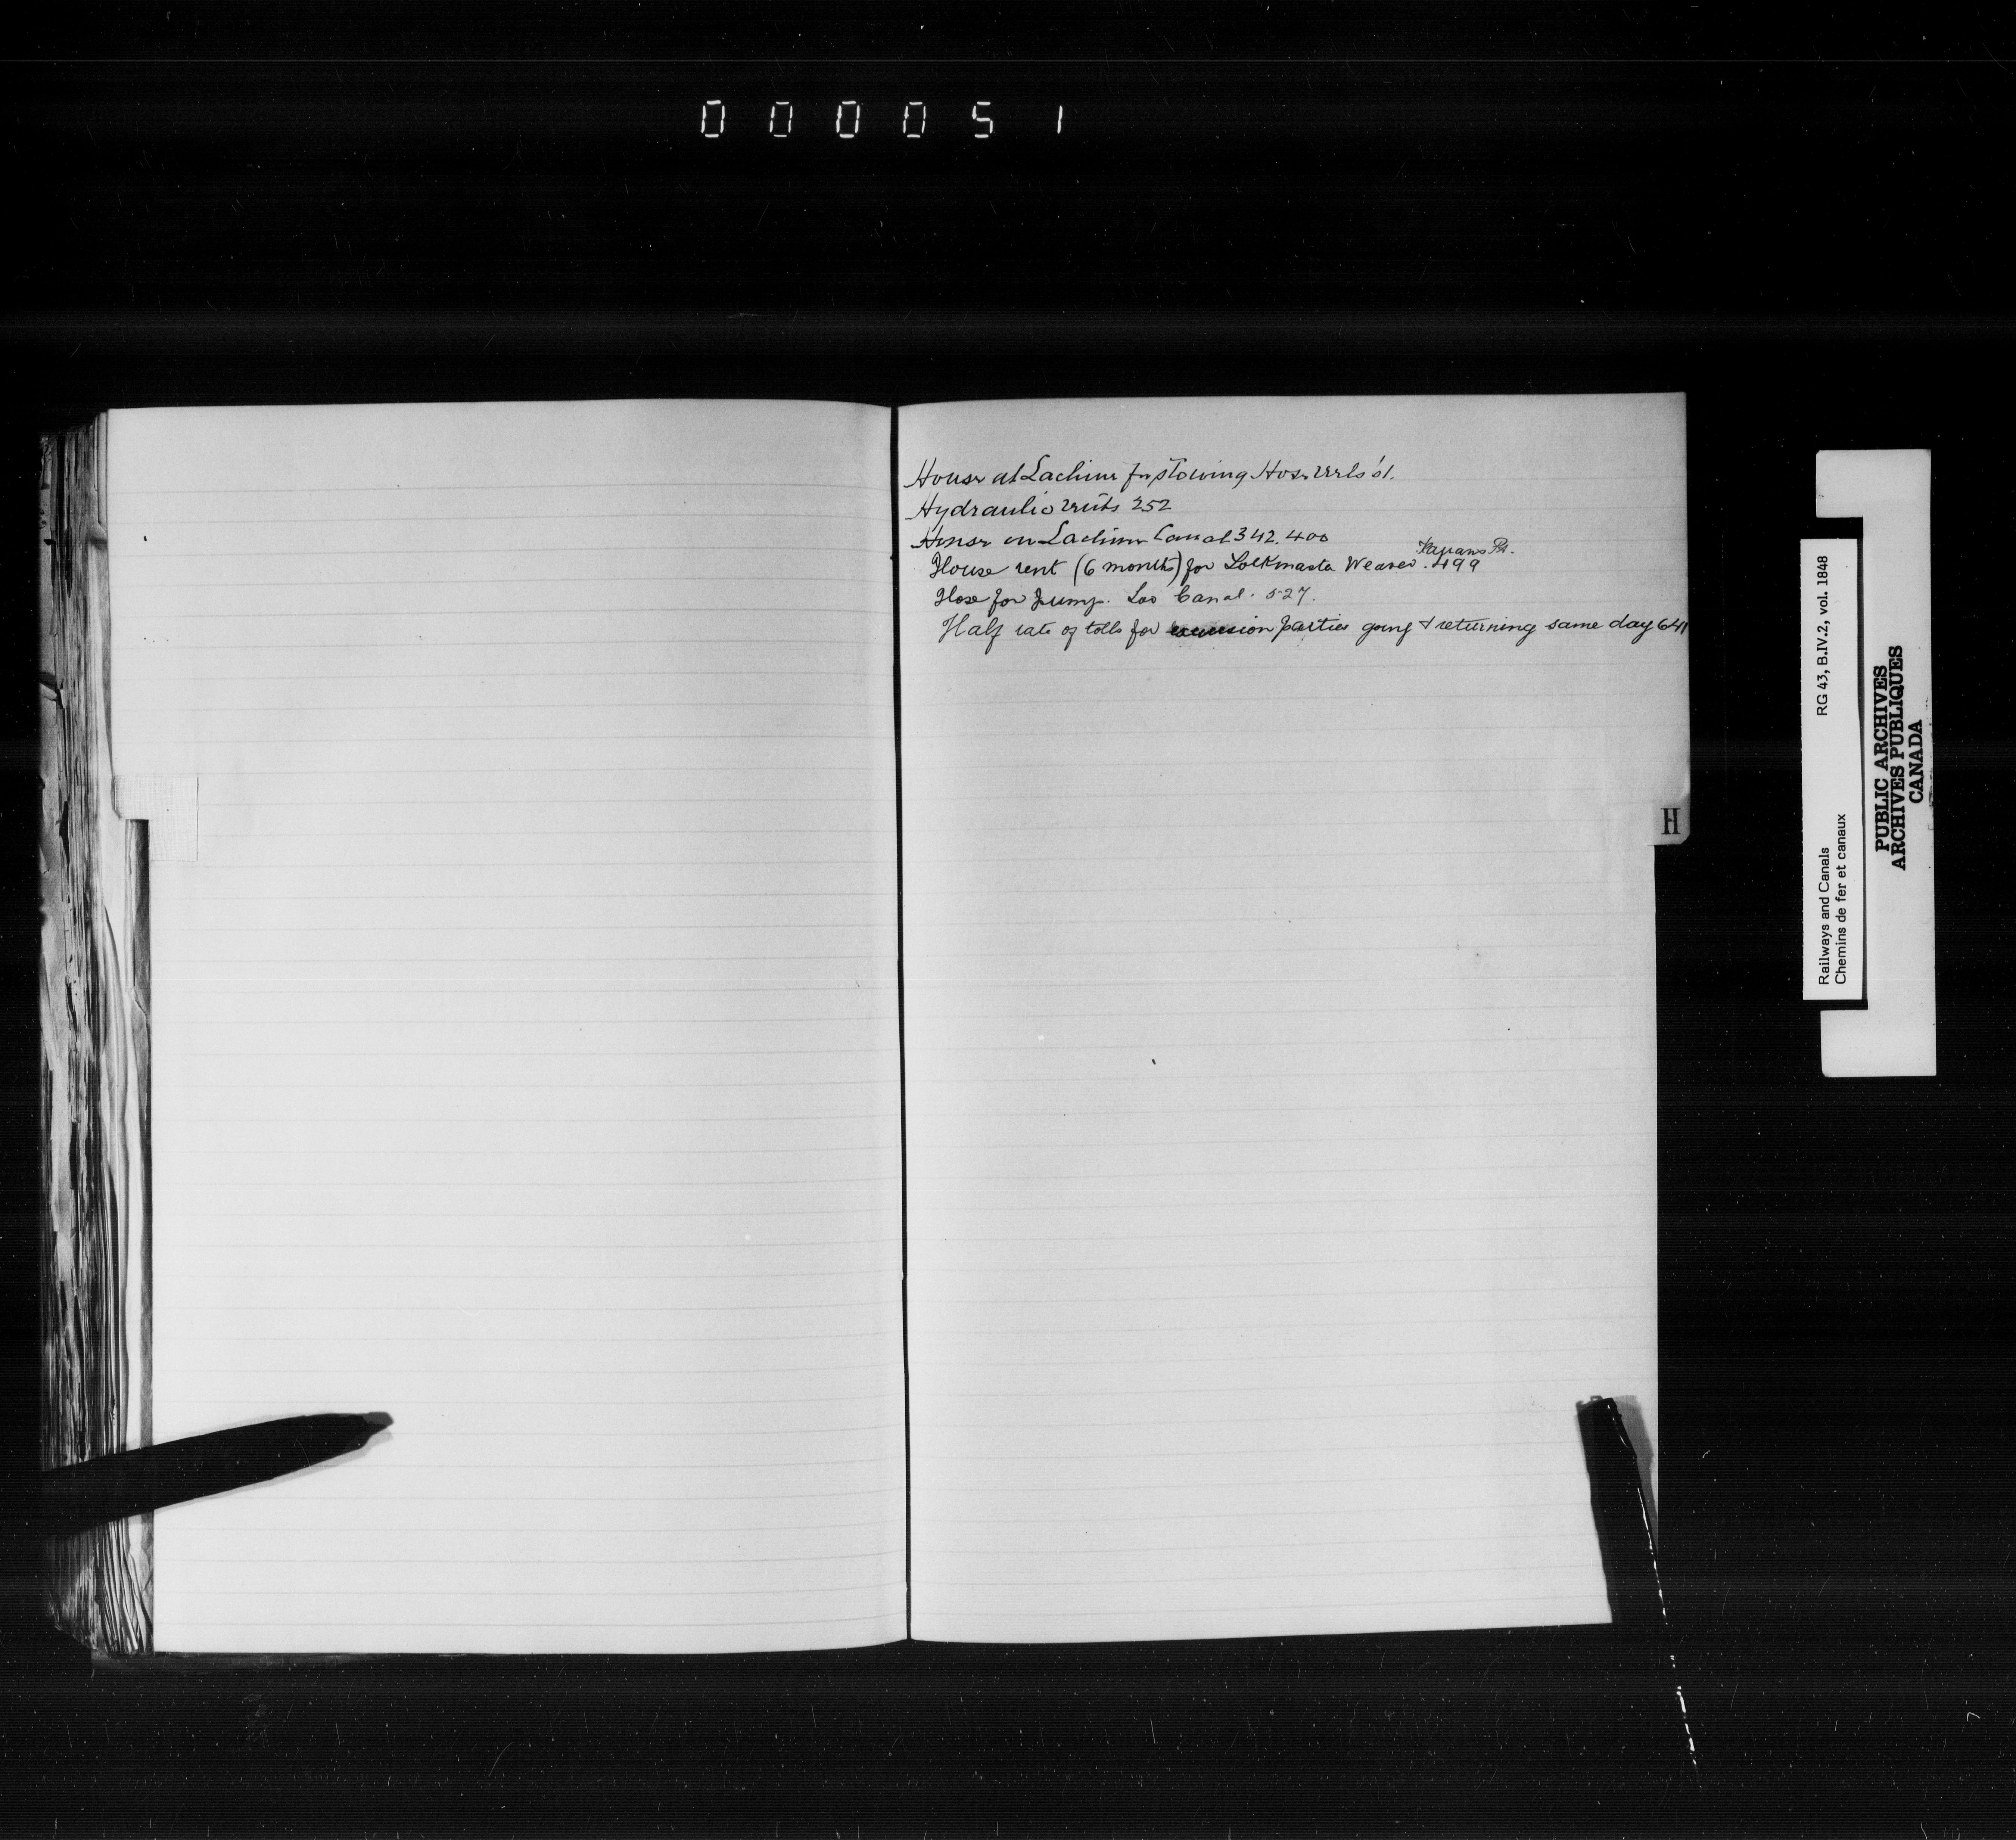 000051
House at Lachine for storing Hose reels 51.
Hydraulic rents 252
House on Lachine Canal 342. 400
Farrans Pt.
House rent (6 months) for Lockmaster Weaver. 499
Hose for Pump. Canal. 527.
Half rate of tolls for excursion parties going & returning same day 641
H
Railways and Canals RG 43, B.IV.2, vol. 1848
Chemins de fer et canaux
PUBLIC ARCHIVES
ARCHIVES PUBLIQUES
CANADA